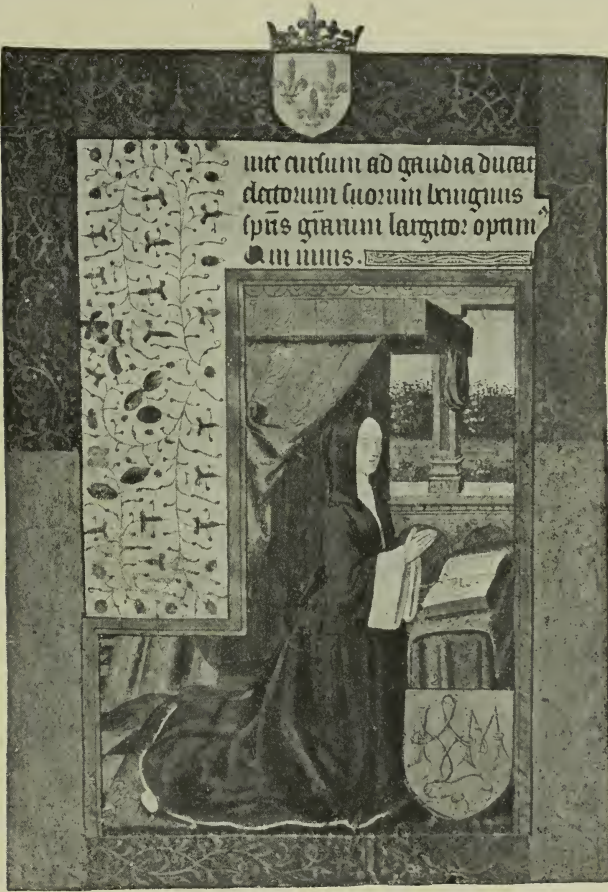 uite curſum ad gaudia ducat
electorum ſuorum benignus
ſpūs grārum largitor optim